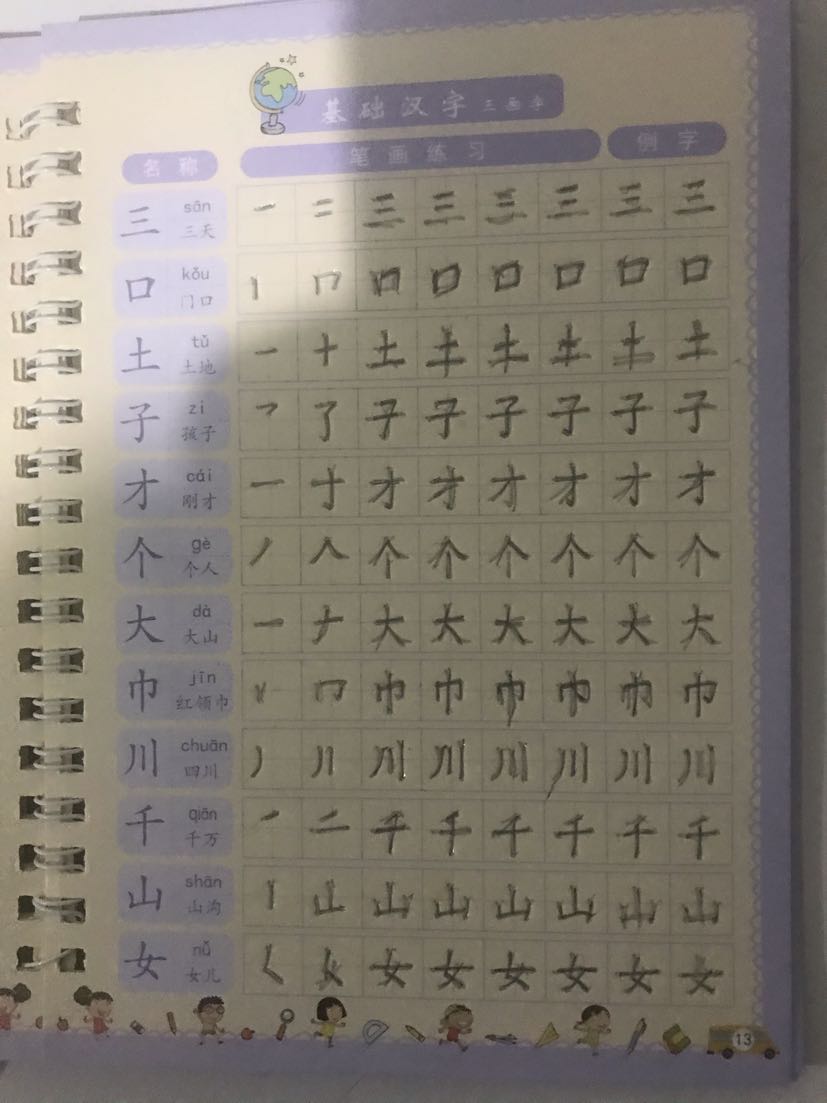 基础汉字 三画字
名称 笔画练习 例字
三 sān 三天 一 二 三 三 三 三 三 三
口 kǒu 门口 丨 冂 口 口 口 口 口 口
土 tǔ 土地 一 十 土 土 土 土 土 土
子 zi 孩子 乛 了 子 子 子 子 子 子
才 cái 刚才 一 十 才 才 才 才 才 才
个 gè 个人 丿 人 个 个 个 个 个 个
大 dà 大山 一 ナ 大 大 大 大 大 大
巾 jīn 红领巾 丨 冂 巾 巾 巾 巾 巾 巾
川 chuān 四川 丿 川 川 川 川 川 川
千 qiān 千万 一 二 千 千 千 千 千 千
山 shān 山沟 丨 山 山 山 山 山 山
女 nǚ 女儿 𡿨 女 女 女 女 女 女
13